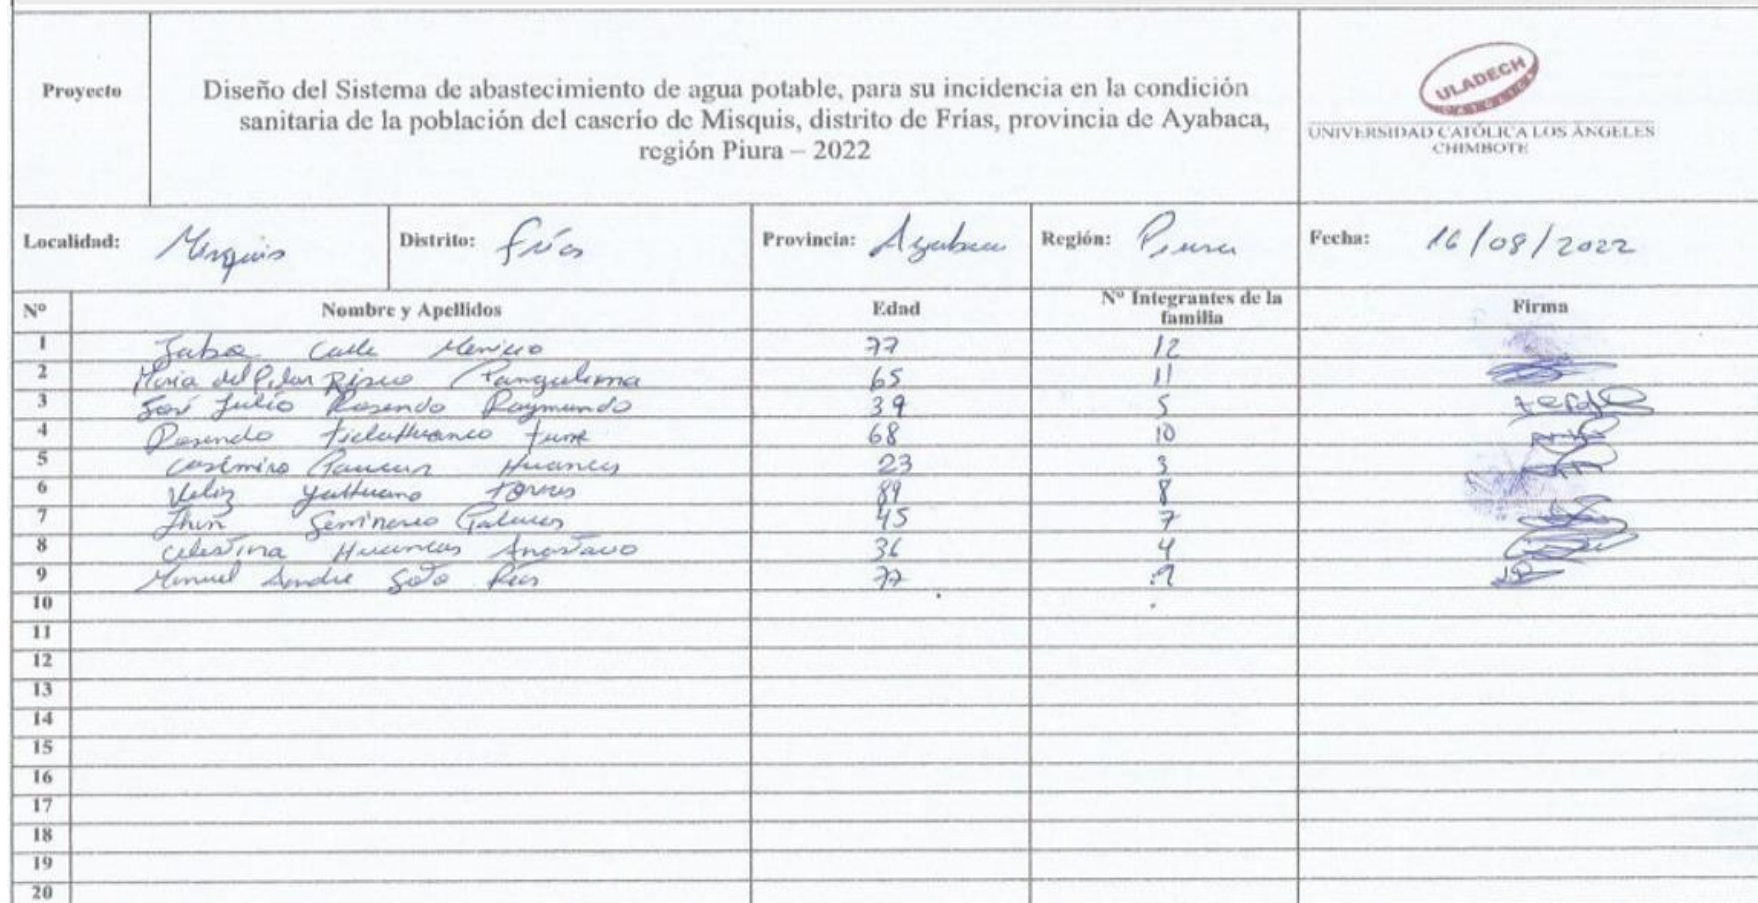 Proyecto
Diseño del Sistema de abastecimiento de agua potable, para su incidencia en la condición
sanitaria de la población del caserio de Misquis, distrito de Frías, provincia de Ayabaca,
región Piura – 2022
ULADECH
UNIVERSIDAD CATÓLICA LOS ÁNGELES
CHIMBOTE
Localidad: Misquis Distrito: Frías Provincia: Ayabaca Región: Piura Fecha: 16/08/2022
Nº Nombre y Apellidos Edad Nº Integrantes de la familia Firma
1 Calle 77 12
2 Maria del Pilar 65 11
3 José Julio Rosendo Raymundo 39 5
4 Rosendo 68 10
5 Casimiro 23 3
6 89 8
7 Seminario 45 7
8 Celestina Huancas 36 4
9 Manuel Andre Soto 77 9
10
11
12
13
14
15
16
17
18
19
20